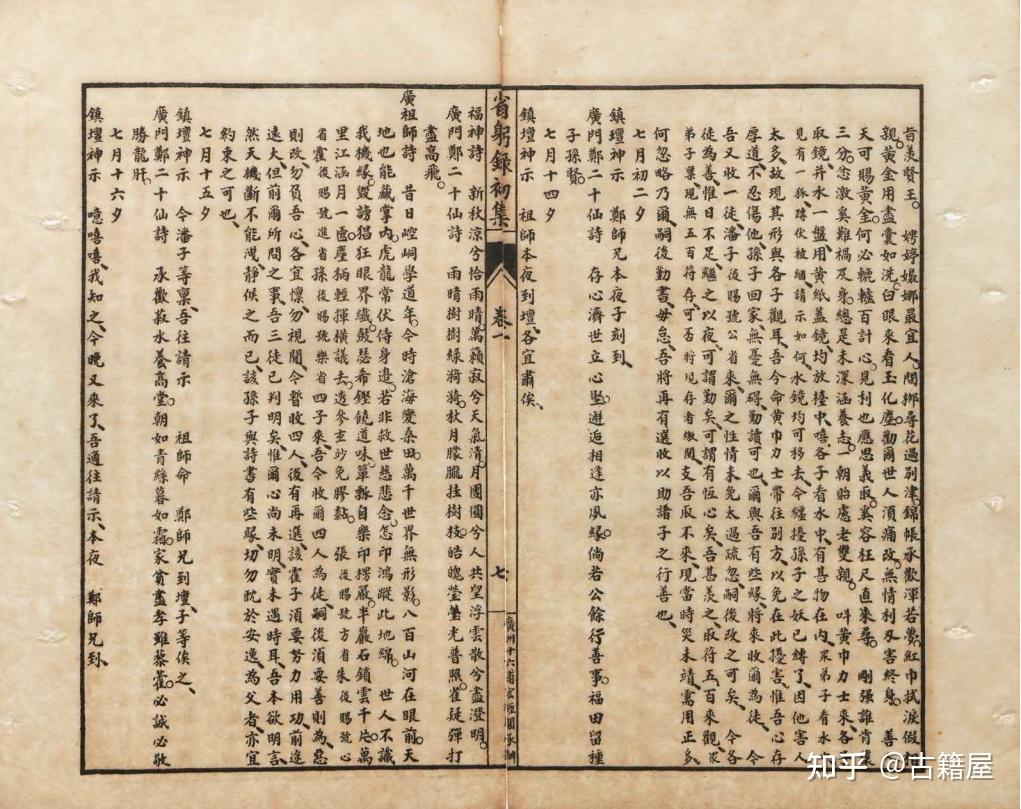 首羨賢王。　娉婷嬝娜最宜人。問鄉尋花過別津。錦帳承歡渾若夢。紅巾拭淚假
親。黃金用盡囊如洗。白眼來看玉化塵。勸爾世人須痛改。無情利刄害終身。　善
天可賜黃金。何必轆轤百計心。見利也應思義取。奚容枉尺直來尋。　剛强誰肯讓
三分。忿激奚難禍及身。總是未深涵養志。一朝貽慮老雙親。　叫黃巾力士來各三
取鏡、并水一盤、用黃紙蓋鏡、均放檯中、嘻、各子看水中、有甚物在內、衆弟子看水
見有一狐、蹲伏被綑、請示如何、水鏡均可移去、令纏擾孫子之妖已縛了、因他害人
太多、故現其形與各子觀耳、吾今命黃巾力士帶往別方、以免在此擾害、惟吾心存
厚道、不忍傷他、孫子回家、無憂無碍、勤讀可也、爾與吾有些緣、將來收爾為徒、　今
吾又收一徒、潘子後賜號公省來、爾之性情、未免太過疏忽、嗣後改之可矣、　令各
徒為善、惟日不足、繼之以夜、可謂勤矣、可謂有恒心矣、吾甚羨之、取符五百來觀、衆
弟子裏、現無五百符存、可否將現存者繳閱、支吾取不來、現當時災未靖、需用正多、
何忽略乃爾、嗣後勤書、毋怠、吾將再有選收、以助諸子之行善也、
七月初二夕
鎮壇神示　鄭師兄本夜子刻到、
廣門鄭二十仙詩　存心濟世立心堅。邂逅相逢亦夙緣。倘若公餘行善事。福田留種
子孫賢。
七月十四夕
鎮壇神示　祖師本夜到壇、各宜肅俟、
省躬錄初集
卷一
七
福神詩　新秋涼兮恰雨晴。萬籟寂兮天氣清。月團圓兮人共望。浮雲散兮盡澄明。
廣門鄭二十仙詩　雨晴樹樹綠漪漪。秋月朦朧挂樹枝。皓魄瑩瑩光普照。雀疑彈打
盡高飛。
廣祖師詩　昔日崆峒學道年。今時滄海變桑田。萬千世界無形影。八百山河在眼前。天
地也能藏掌內。虎龍常伏侍身邊。若非救世慈悲念。怎印鴻蹤此地緣。　世人不識
我機緣。毀謗猖狂眼界纖。鼓瑟希鏗饒道味。簞瓢自樂印楞嚴。半巖石鎖雲千片。萬
里江涵月一匳。塵柄輕揮橫議去。透參玄妙免膠黏。　張後賜號方省朱後賜號心
省霍後賜號進省孫後賜號樂省四子來、吾今收爾四人為徒、嗣後須要善則為、惡
則改、勿負吾心、各宜懍、勿視閒、今暫收四人、後有再選、該霍子須要努力用功、前途
遠大、但前爾所問之事、吾三徒已判明矣、惟爾心尚未明、實未遇時耳、吾本欲明言、
然天機斷不能洩、靜候之而已、該孫子與詩書有些緣、切勿耽於安逸、為父者、亦宜
約束之可也、
七月十五夕
鎮壇神示　令潘子等稟、吾往請示　祖師命　鄭師兄到壇、子等俟之、
廣門鄭二十仙詩　承歡菽水養高堂。朝如青絲暮如霜。家貧盡孝雖藜藿。必誠必敬
勝龍肝。
七月十六夕
鎮壇神示　噫嘻嘻、我知之、今晚又來了、吾適往請示、本夜　鄭師兄到、
知乎 @古籍屋